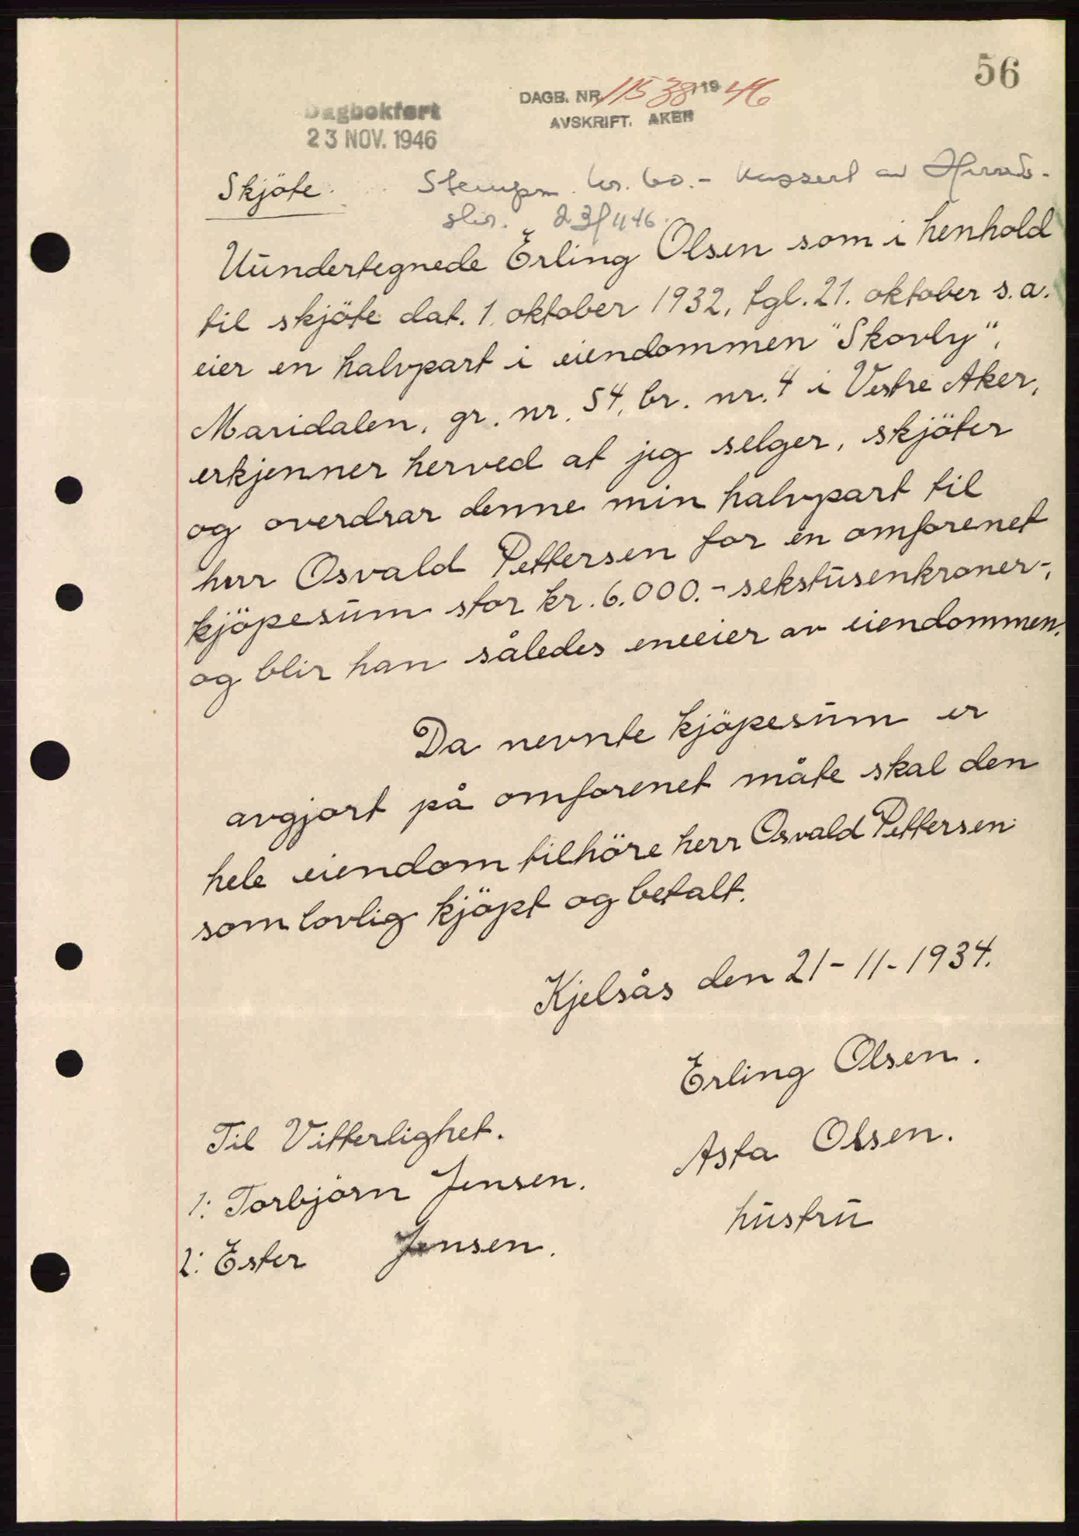 56
Dagbokført
23 NOV. 1946
DAGB. NR. 11538 1946
AVSKRIFT. AKER
Skjöte.
Stempm. kr. 60.- kassert av
skr. 23/11 46.
Uundertegnede Erling Olsen som i henhold
til skjöte dat. 1. oktober 1932, tgl. 21. oktober s.a.
eier en halvpart i eiendommen "Skovly",
Maridalen, gr. nr. 54, br. nr. 4 i Vestre Aker,
erkjenner herved at jeg selger, skjöter
og overdrar denne min halvpart til
herr Osvald Pettersen for en omforenet
kjöpesum stor kr. 6.000.- sekstusenkroner-,
og blir han således eneeier av eiendommen.
Da nevnte kjöpesum er
avgjort på omforenet måte skal den
hele eiendom tilhöre herr Osvald Pettersen
som lovlig kjöpt og betalt.
Kjelsås den 21-11-1934.
Erling Olsen.
Til Vitterlighet.
Asta Olsen.
1: Torbjörn Jensen.
hustru
2: Ester Jensen.